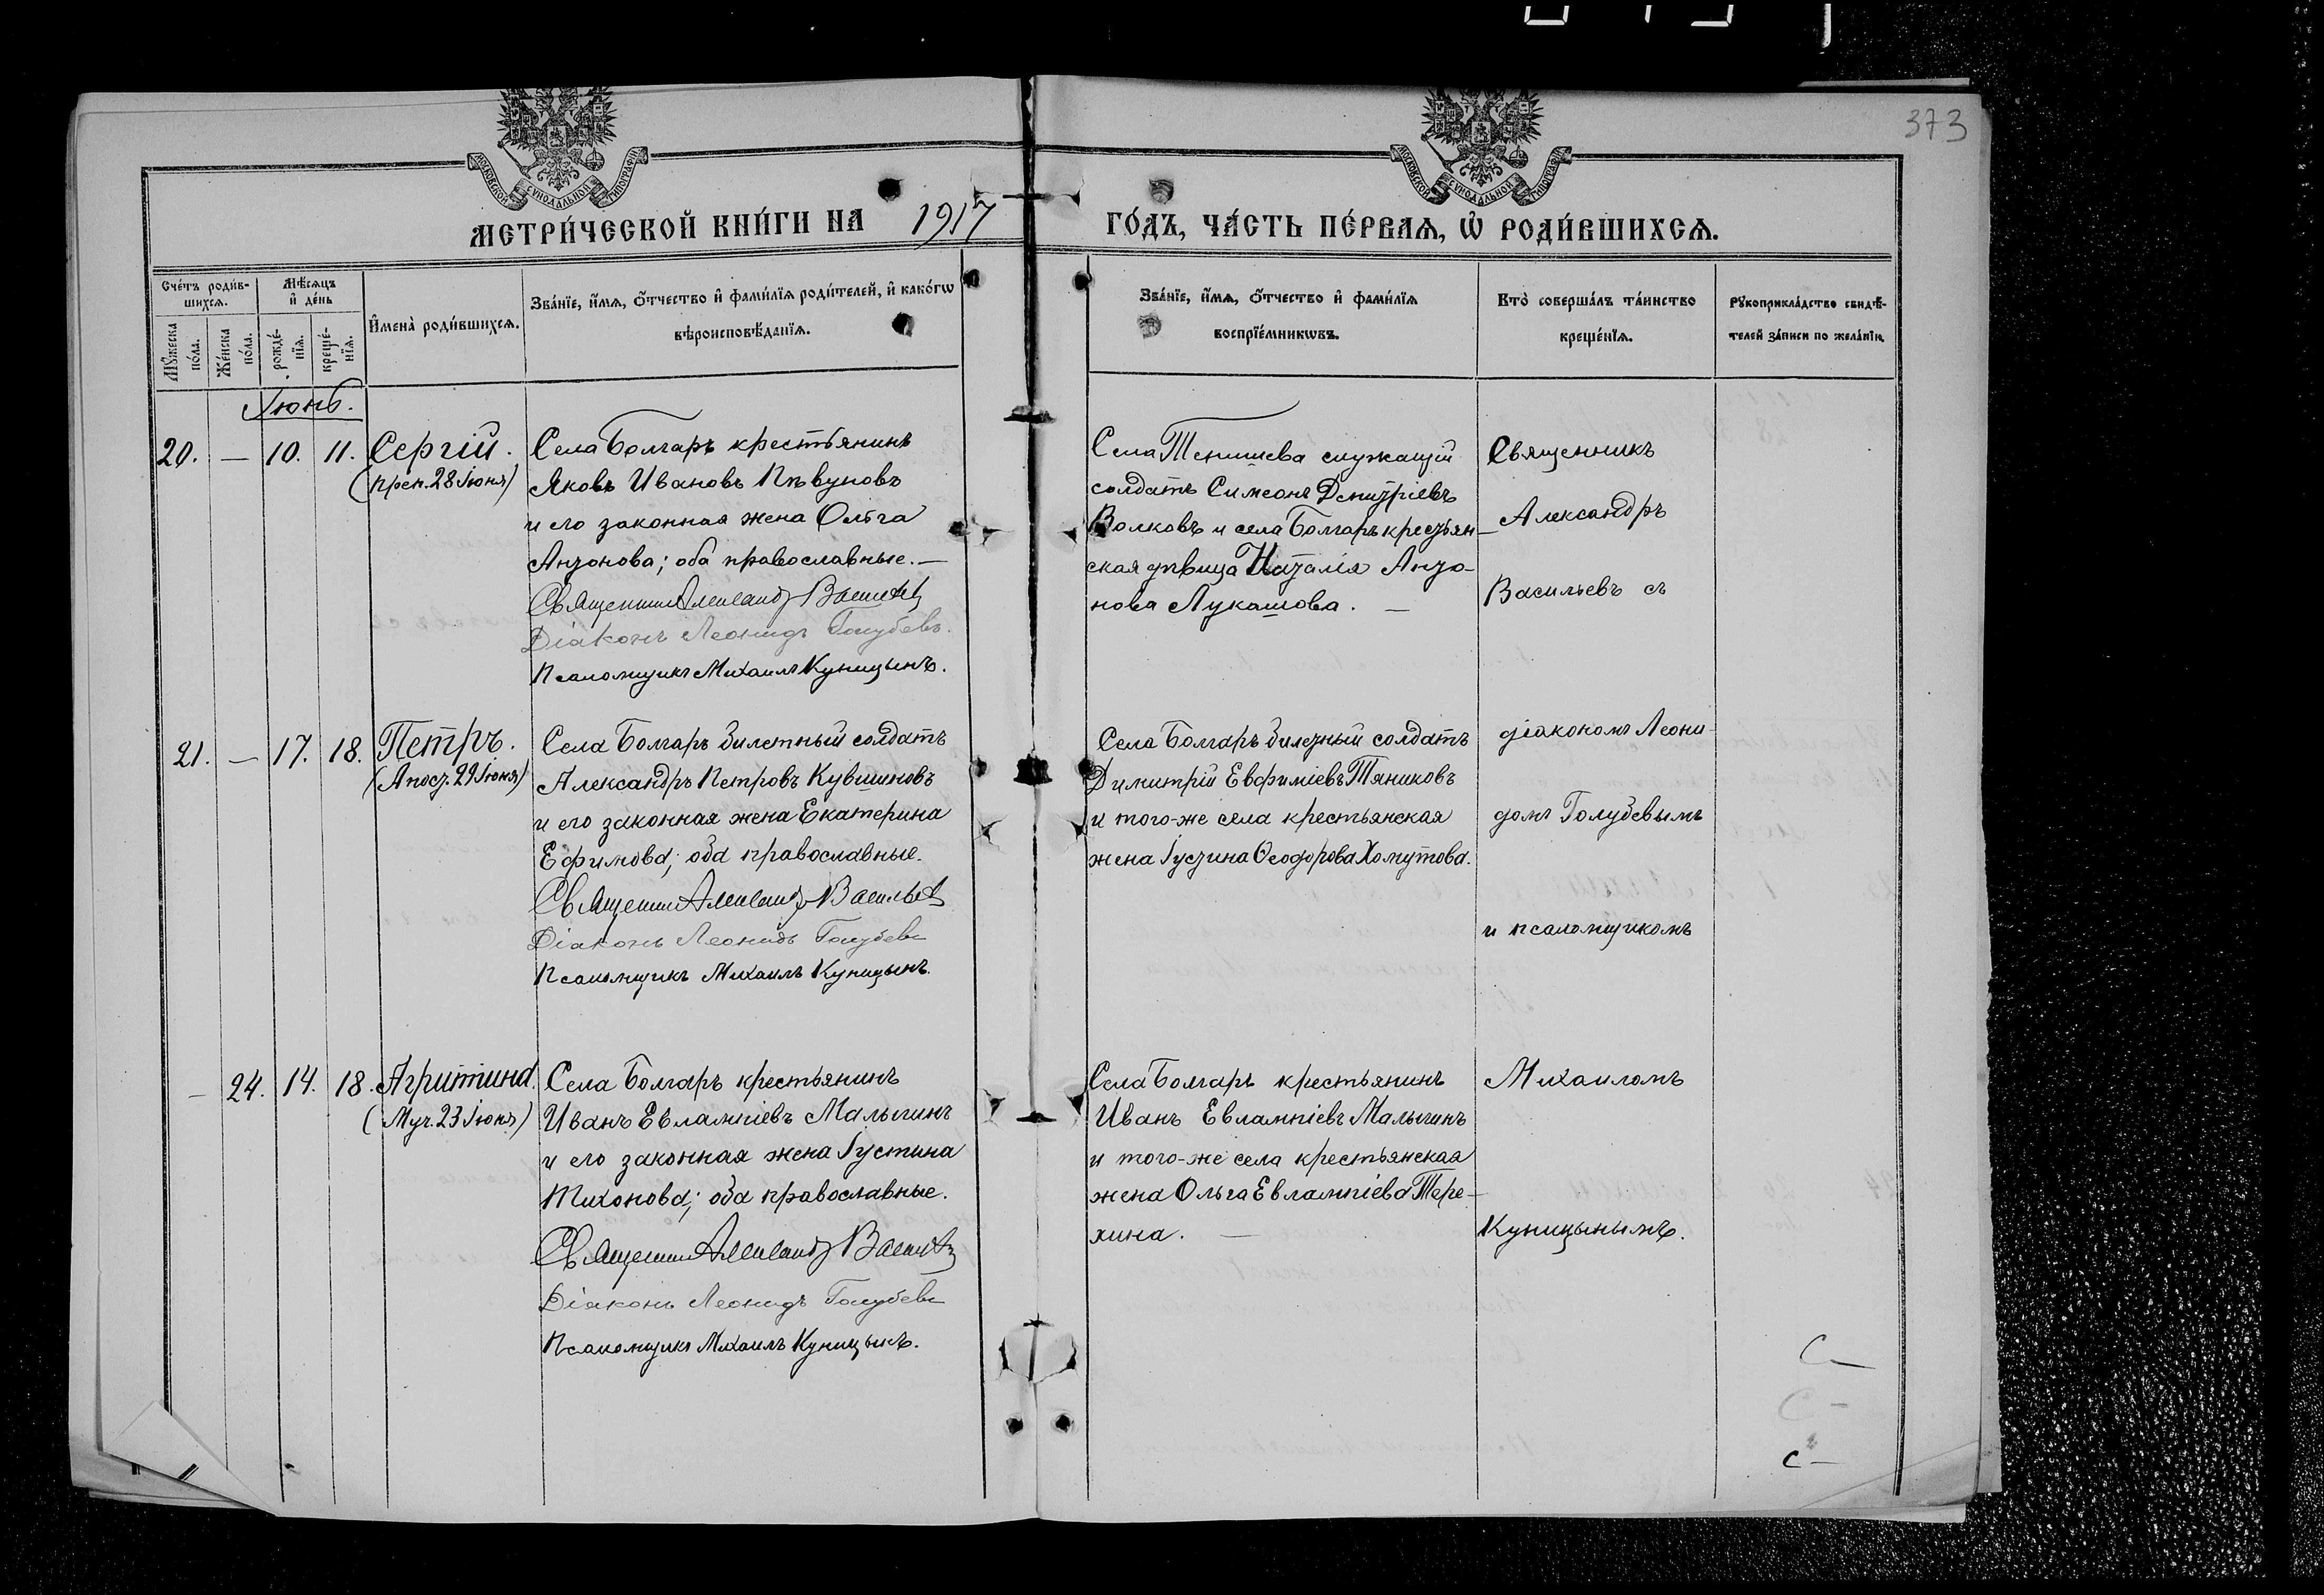 373
МОСКОВСКОЙ СѴНОДАЛЬНОЙ ТИПОГРАФІИ
МОСКОВСКОЙ СѴНОДАЛЬНОЙ ТИПОГРАФІИ
МЕТРИ́ЧЕСКОЙ КНИ́ГИ НА 1917 ГО́ДЪ, ЧА́СТЬ ПЕ́РВАѦ, Ѡ҆ РОДИ́ВШИХСѦ.
Сче́тъ роди́в-
шихсѧ.
Мꙋ́жеска
по́ла.
Же́нска
по́ла.
Мѣ́сѧцъ
и҆ де́нь
рожде́-
нїѧ.
креще́-
нїѧ.
И҆мена̀ роди́вшихсѧ.
Зва́нїе, и҆́мѧ, ѻ҆́тчество и҆ фами́лїѧ роди́телей, и҆ како́гѡ
вѣроисповѣ́данїѧ.
Зва́нїе, и҆́мѧ, ѻ҆́тчество и҆ фами́лїѧ
воспрїе́мникѡвъ.
Кто̀ соверша́лъ та́инство
креще́нїѧ.
Рꙋкоприкла́дство свидѣ́-
телей за́писи по жела́нїю.
Іюнь.
20. — 10. 11. Сергій.
(Преп. 28 Іюня)
Села Болгаръ крестьянинъ
Яковъ Ивановъ Пѣвуновъ
и его законная жена Ольга
Антонова; оба православные. —
Священникъ Александръ Васильевъ
Діаконъ Леонидъ Голубевъ.
Псаломщикъ Михаилъ Куницынъ.
Села Тенишева служащій
солдатъ Симеонъ Димитріевъ
Волковъ и села Болгаръ крестьян-
ская дѣвица Наталія Анто-
нова Лукашова. —
Священникъ
Александръ
Васильевъ съ
21. — 17. 18. Петръ.
(Апост. 29 Іюня)
Села Болгаръ билетный солдатъ
Александръ Петровъ Кувшиновъ
и его законная жена Екатерина
Ефимова; оба православные.
Священникъ Александръ Васильевъ
Діаконъ Леонидъ Голубевъ
Псаломщикъ Михаилъ Куницынъ.
Села Болгаръ билетный солдатъ
Димитрій Евфиміевъ Тяниковъ
и того-же села крестьянская
жена Іустина Ѳеодорова Хомутова.
діакономъ Леони-
домъ Голубевымъ
и псаломщикомъ
— 24. 14. 18. Агрипина.
(Муч. 23 Іюня)
Села Болгаръ крестьянинъ
Иванъ Евлампіевъ Малыгинъ
и его законная жена Іустина
Тихонова; оба православные.
Священникъ Александръ Васильевъ
Діаконъ Леонидъ Голубевъ
Псаломщикъ Михаилъ Куницынъ.
Села Болгаръ крестьянинъ
Иванъ Евлампіевъ Малыгинъ
и того-же села крестьянская
жена Ольга Евлампіева Тере-
хина. —
Михаиломъ
Куницынымъ.
С —
С —
С —